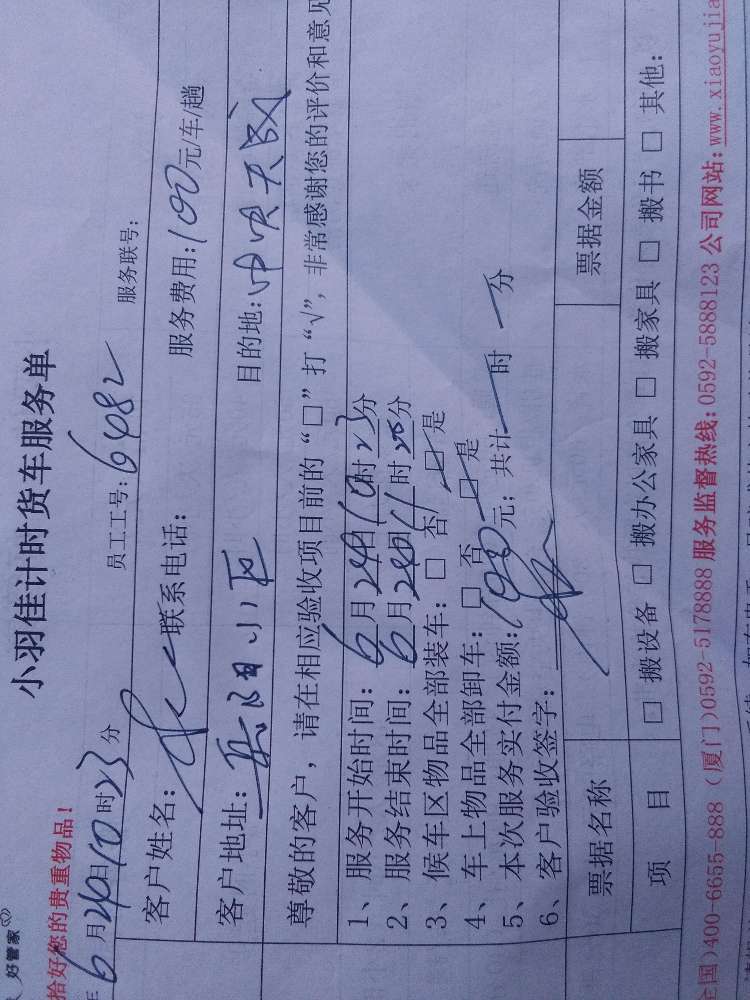 好管家
小羽佳计时货车服务单
拾好您的贵重物品!
年 6 月 24 日 10 时 23 分 员工工号: 6482 服务联号:
客户姓名: 联系电话: 服务费用: 100 元/车/趟
客户地址: 岳阳小区 目的地: 中央天成
尊敬的客户, 请在相应验收项目前的“□”打“√”, 非常感谢您的评价和意见
1、服务开始时间: 6 月 24 日 10 时 23 分
2、服务结束时间: 6 月 24 日 11 时 分
3、候车区物品全部装车: □ 否 □ 是
4、车上物品全部卸车: □ 否 □ 是
5、本次服务实付金额: 100 元; 共计 时 分
6、客户验收签字:
票据名称 票据金额
项 目 □ 搬设备 □ 搬办公家具 □ 搬家具 □ 搬书 □ 其他:
全国)400-6655-888 (厦门)0592-5178888 服务监督热线: 0592-5888123 公司网站: www.xiaoyujia